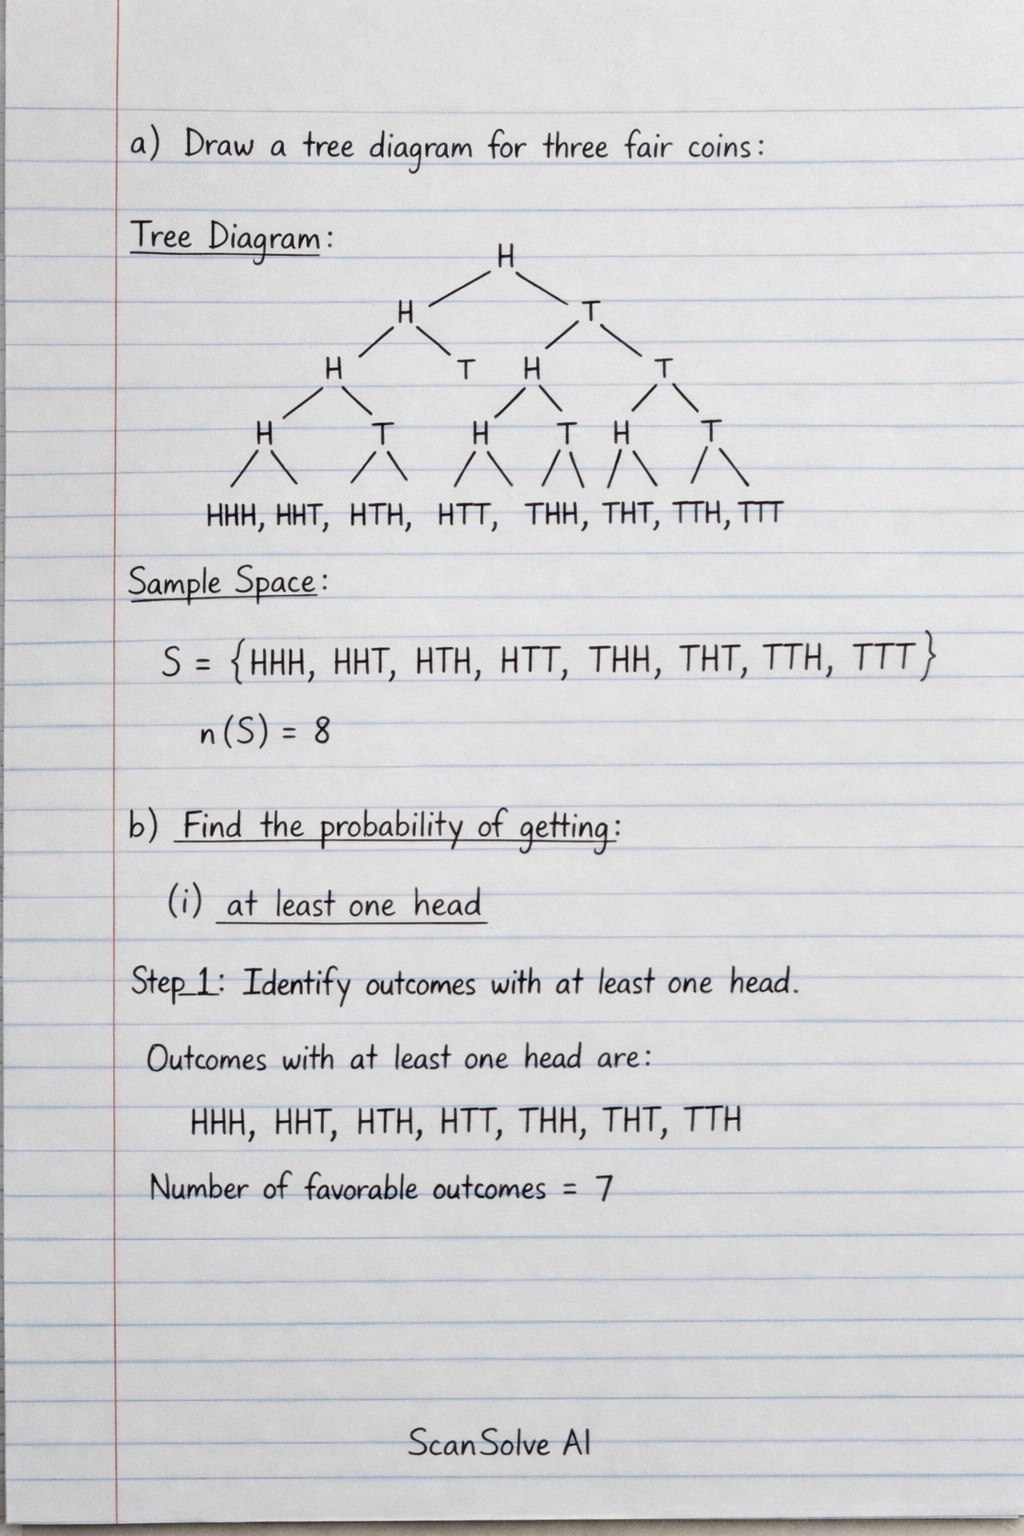 a) Draw a tree diagram for three fair coins:
Tree Diagram:
H
H T
H T H T
H T H T H T
HHH, HHT, HTH, HTT, THH, THT, TTH, TTT
Sample Space:
S = {HHH, HHT, HTH, HTT, THH, THT, TTH, TTT}
n(S) = 8
b) Find the probability of getting:
(i) at least one head
Step 1: Identify outcomes with at least one head.
Outcomes with at least one head are:
HHH, HHT, HTH, HTT, THH, THT, TTH
Number of favorable outcomes = 7
ScanSolve AI